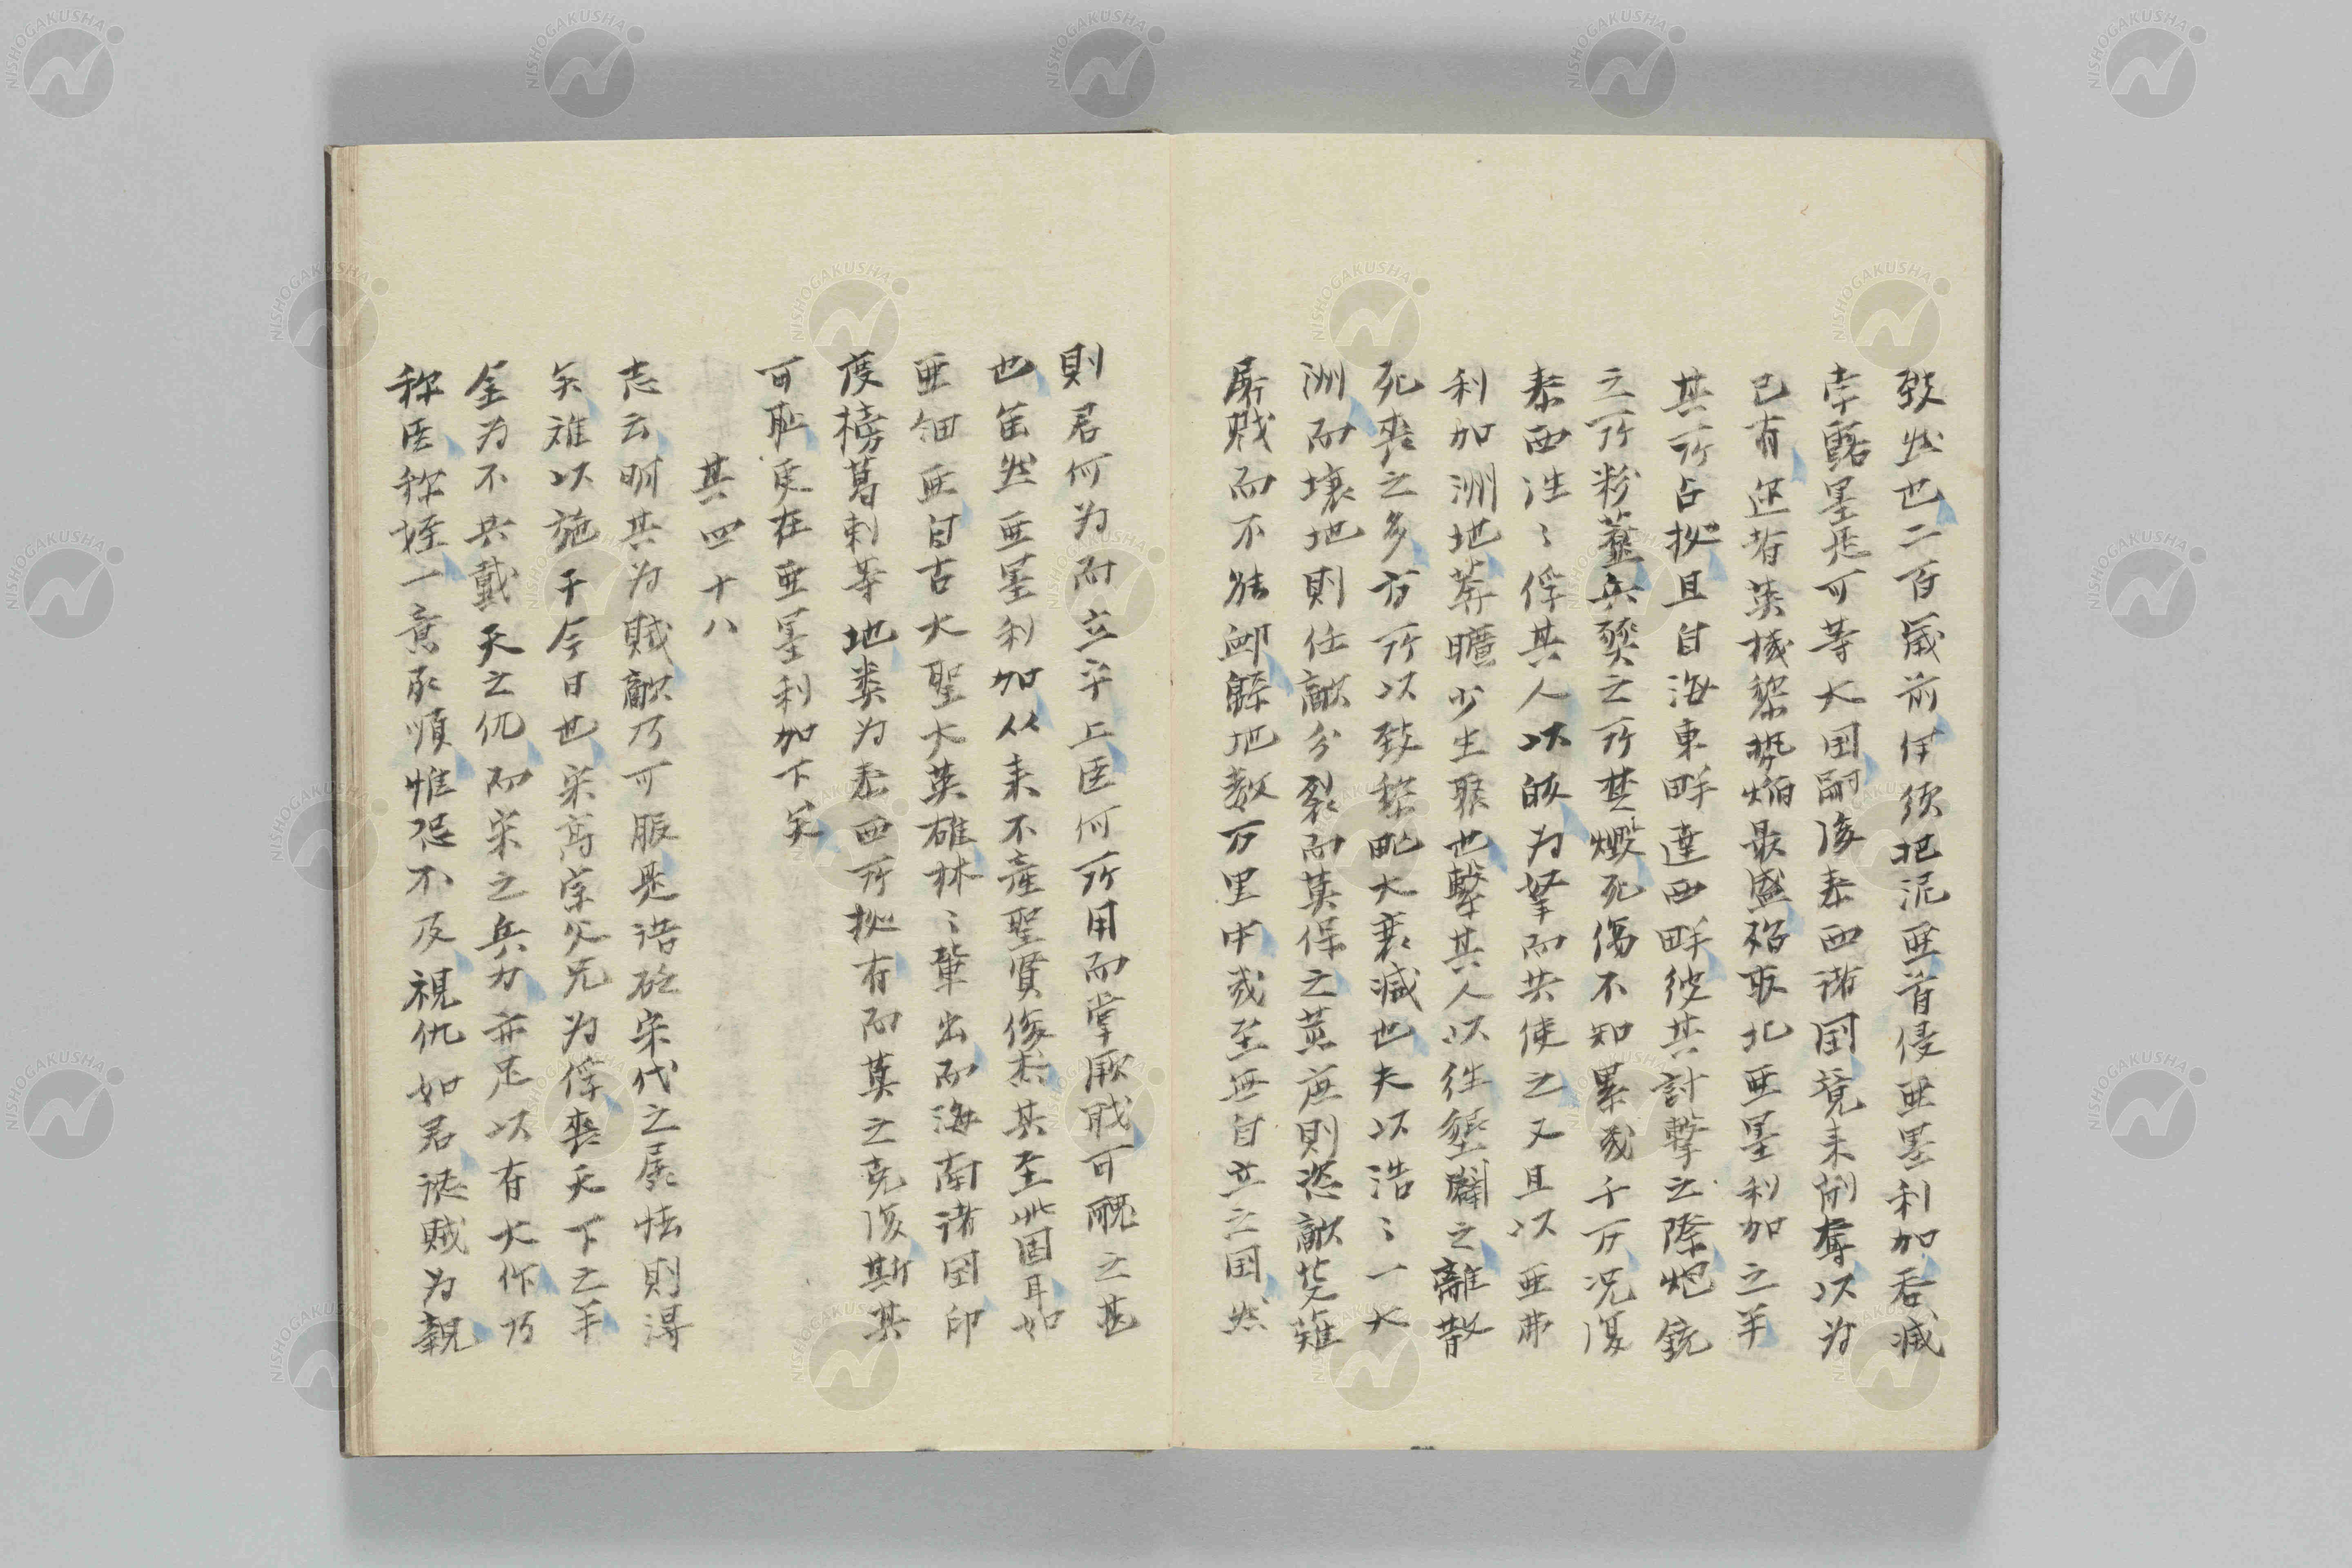 致然也二百歳前伊須把泥亜首侵亜墨利加呑滅
孛露墨是可等大国嗣後泰西諸国競来側奪以為
已有迩者英機黎勢焔最盛殆取北亜墨利加之半
其所占拠且自海東畔達西畔彼其討撃之際炮銃
之所粉虀兵燹之所焚燬死傷不知累幾千万况復
泰西往〻俘其人以皈為孥而共使之又且以亜弗
利加洲地莽曠少生聚也撃其人以往墾闢之離散
死喪之多方所以致黎甿大衰減也夫以浩〻一大
洲而壌地則任敵分裂而莫保之黄庶則恣敵芟薙
屠戮而不能卹幹地数万里中或至無自立之国然
則君何為而立乎上臣何所用而掌厥職可醜之甚
也雖然亜墨利加从来不産聖賢俊杰其至此固耳如
亜細亜自古大聖大英雄林〻輩出而海南諸国印
度榜葛剌等地類為泰西所拠有而莫之克復斯其
可恥更在亜墨利加下矣
其四十八
志云明其為賊敵乃可服是語砭宋代之孱怯則得
矣難以施于今日也宋高宗父兄為俘喪天下之半
金為不共戴天之仇而宋之兵力亦足以有大作乃
称臣称姪一意承順惟恐不及視仇如君認賊為親